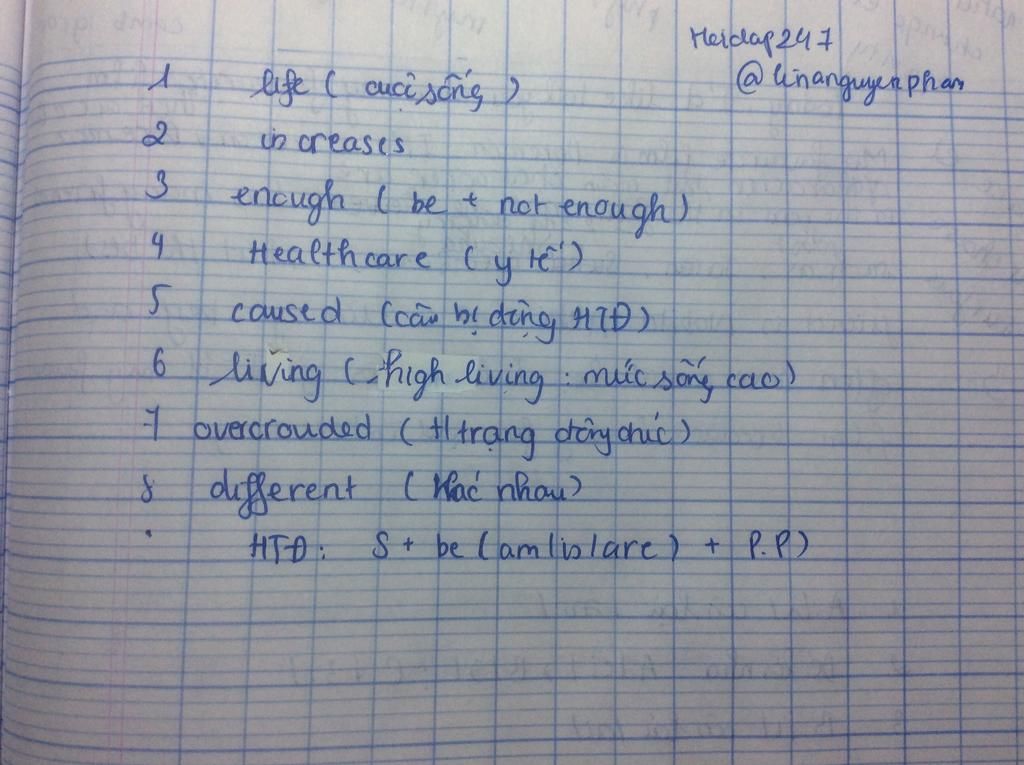 Hoidap247
@linanguyenphan
1 life ( cuộc sống )
2 increases
3 enough ( be + not enough )
4 Healthcare ( y tế )
5 caused ( câu bị động HTĐ )
6 living ( high living : mức sống cao )
7 overcrouded ( ttrạng đông đúc )
8 different ( khác nhau )
HTĐ : S + be ( am / is / are ) + P.P )